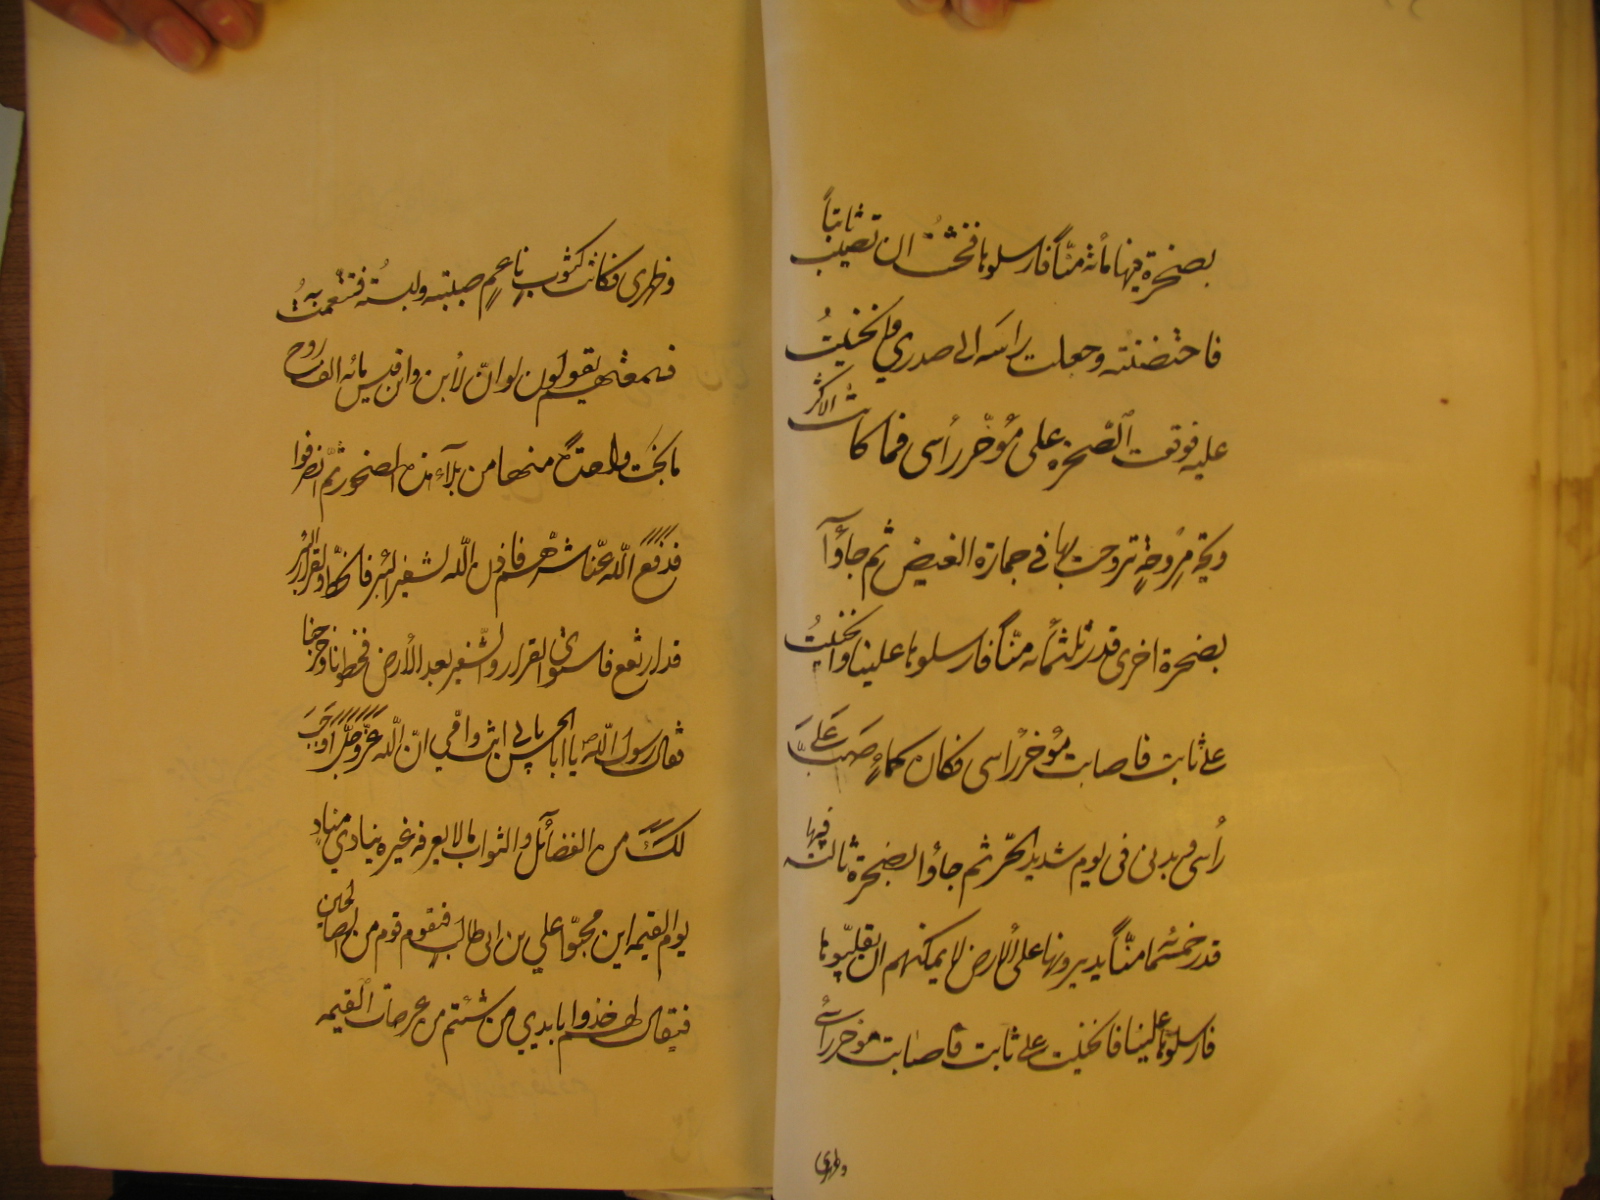 بصخرة فيها مأئة منّاً فارسلوها فخشتُ ان تصيب ثابتاً
فاحتضنته وجعلت راسه الى صدري وانحنيتُ
عليه فوقعت الصّخرة على مؤخّر رأسى فما كانت الا كتر
ويحة مِروَحةٍ تروحت بها في حمارة الغيض ثم جاؤا
بصخرة اخرى قدر ثلثمأئه منّاً فارسلوها علينا وانحنيتُ
على ثابت فاصابت مؤخر رأسى فكان كماءٍ صبّ عَلىَ
رأسى وبدنى فى يوم شديد الحرّ ثم جاؤا بصخرة ثالثه فيها
قدر خمسمائه منّاً يديرونها على الأرض لا يمكنهم ان يقلّبوها
فارسلوها علينا فانحنيت على ثابت فاصابت مؤخر رأسى
وظهرى
وظهرى فكانت كثوبٍ ناعمٍ صببته ولبسته فتنعمتُ به
فسمعتهم يقولون لو انّ لأبن وابن قيس مائه الف روح
ما نجت واحدة منها من بلآء هذه الصخور ثمّ انصرفوا
فدفع اللّه عنّا شرّهم فاذن اللّه لشفير البئر فانحطّ ولقرار البئر
فدارتفع فاستوى القرار والشّفير بعد الأرض فخطونا وخرجنا
فقال رسول اللّه يا ابا الحسن بابي انت وامّي انّ اللّه عزّوجلّ اوجَبَ
لك من الفضائل والثواب ما لا يعرفه غيره ينادي منادٍ
يوم القيمه اين محبّوا علي بن ابى طالب فيقوم قوم من الصالحين
فيقال لهم خذوا بايدي من شئتم من عرصات القيمه